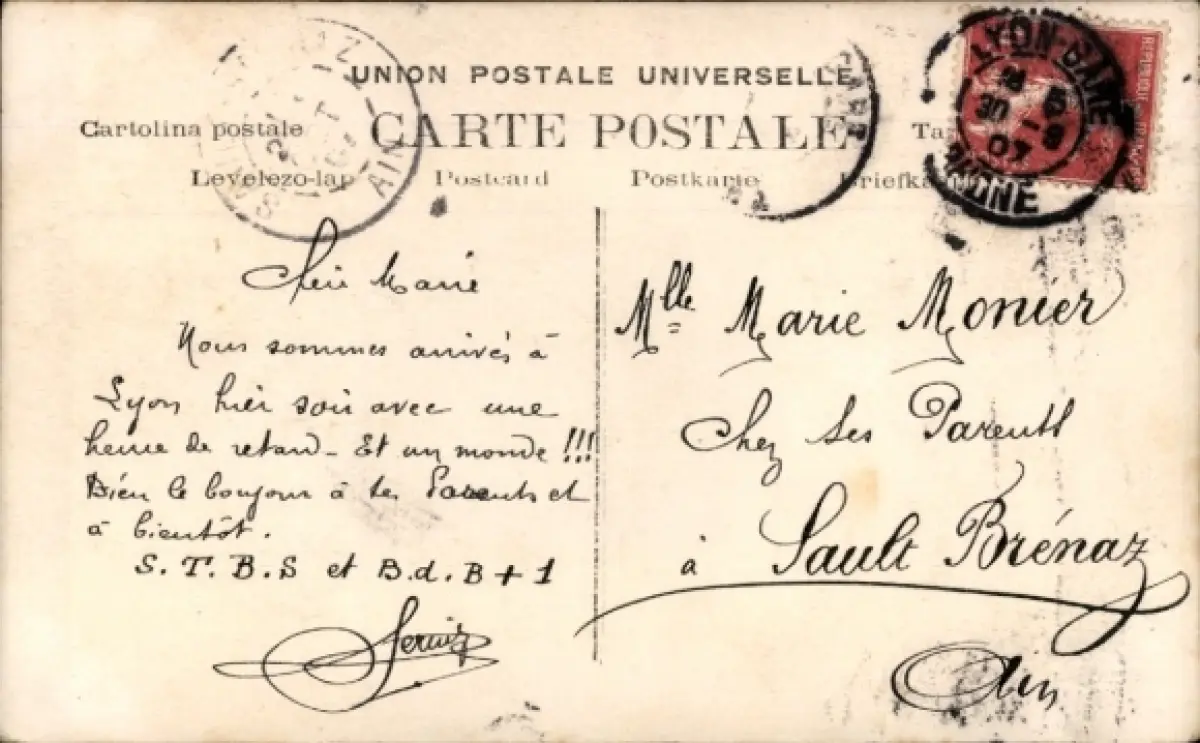 UNION POSTALE UNIVERSELLE
Cartolina postale CARTE POSTALE
Levelezo-lap Postcard Postkarte
LYON-GARE
30 -8
07
RHÔNE
AIN
Chère Marie
Nous sommes arrivés à
Lyon hier soir avec une
heure de retard - Et un monde !!!
Bien le bonjour à tes Parents et
à bientôt.
S. T. B. S et B. d. B + 1
Mlle Marie Monier
Chez ses Parents
à Sault Brénaz
Ain